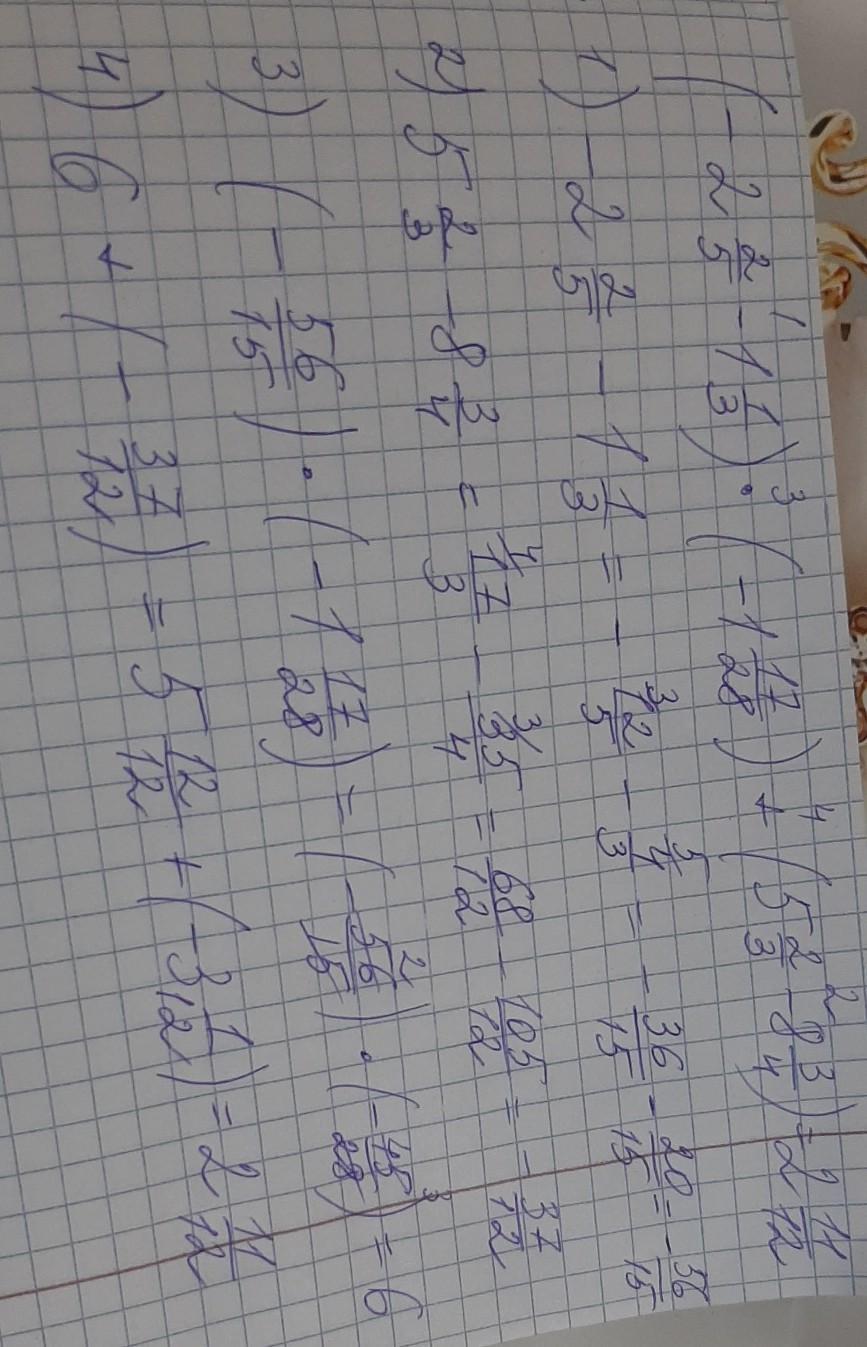 (-2 2/5 - 1 1/3) · (-1 17/28) + (5 2/3 - 8 3/4) = 2 11/12
1) -2 2/5 - 1 1/3 = - 12/5 - 4/3 = - 36/15 - 20/15 = - 56/15
2) 5 2/3 - 8 3/4 = 17/3 - 35/4 = 68/12 - 105/12 = - 37/12
3) (- 56/15) · (-1 17/28) = (- 56/15) · (- 45/28) = 6
4) 6 + (- 37/12) = 5 12/12 + (-3 1/12) = 2 11/12